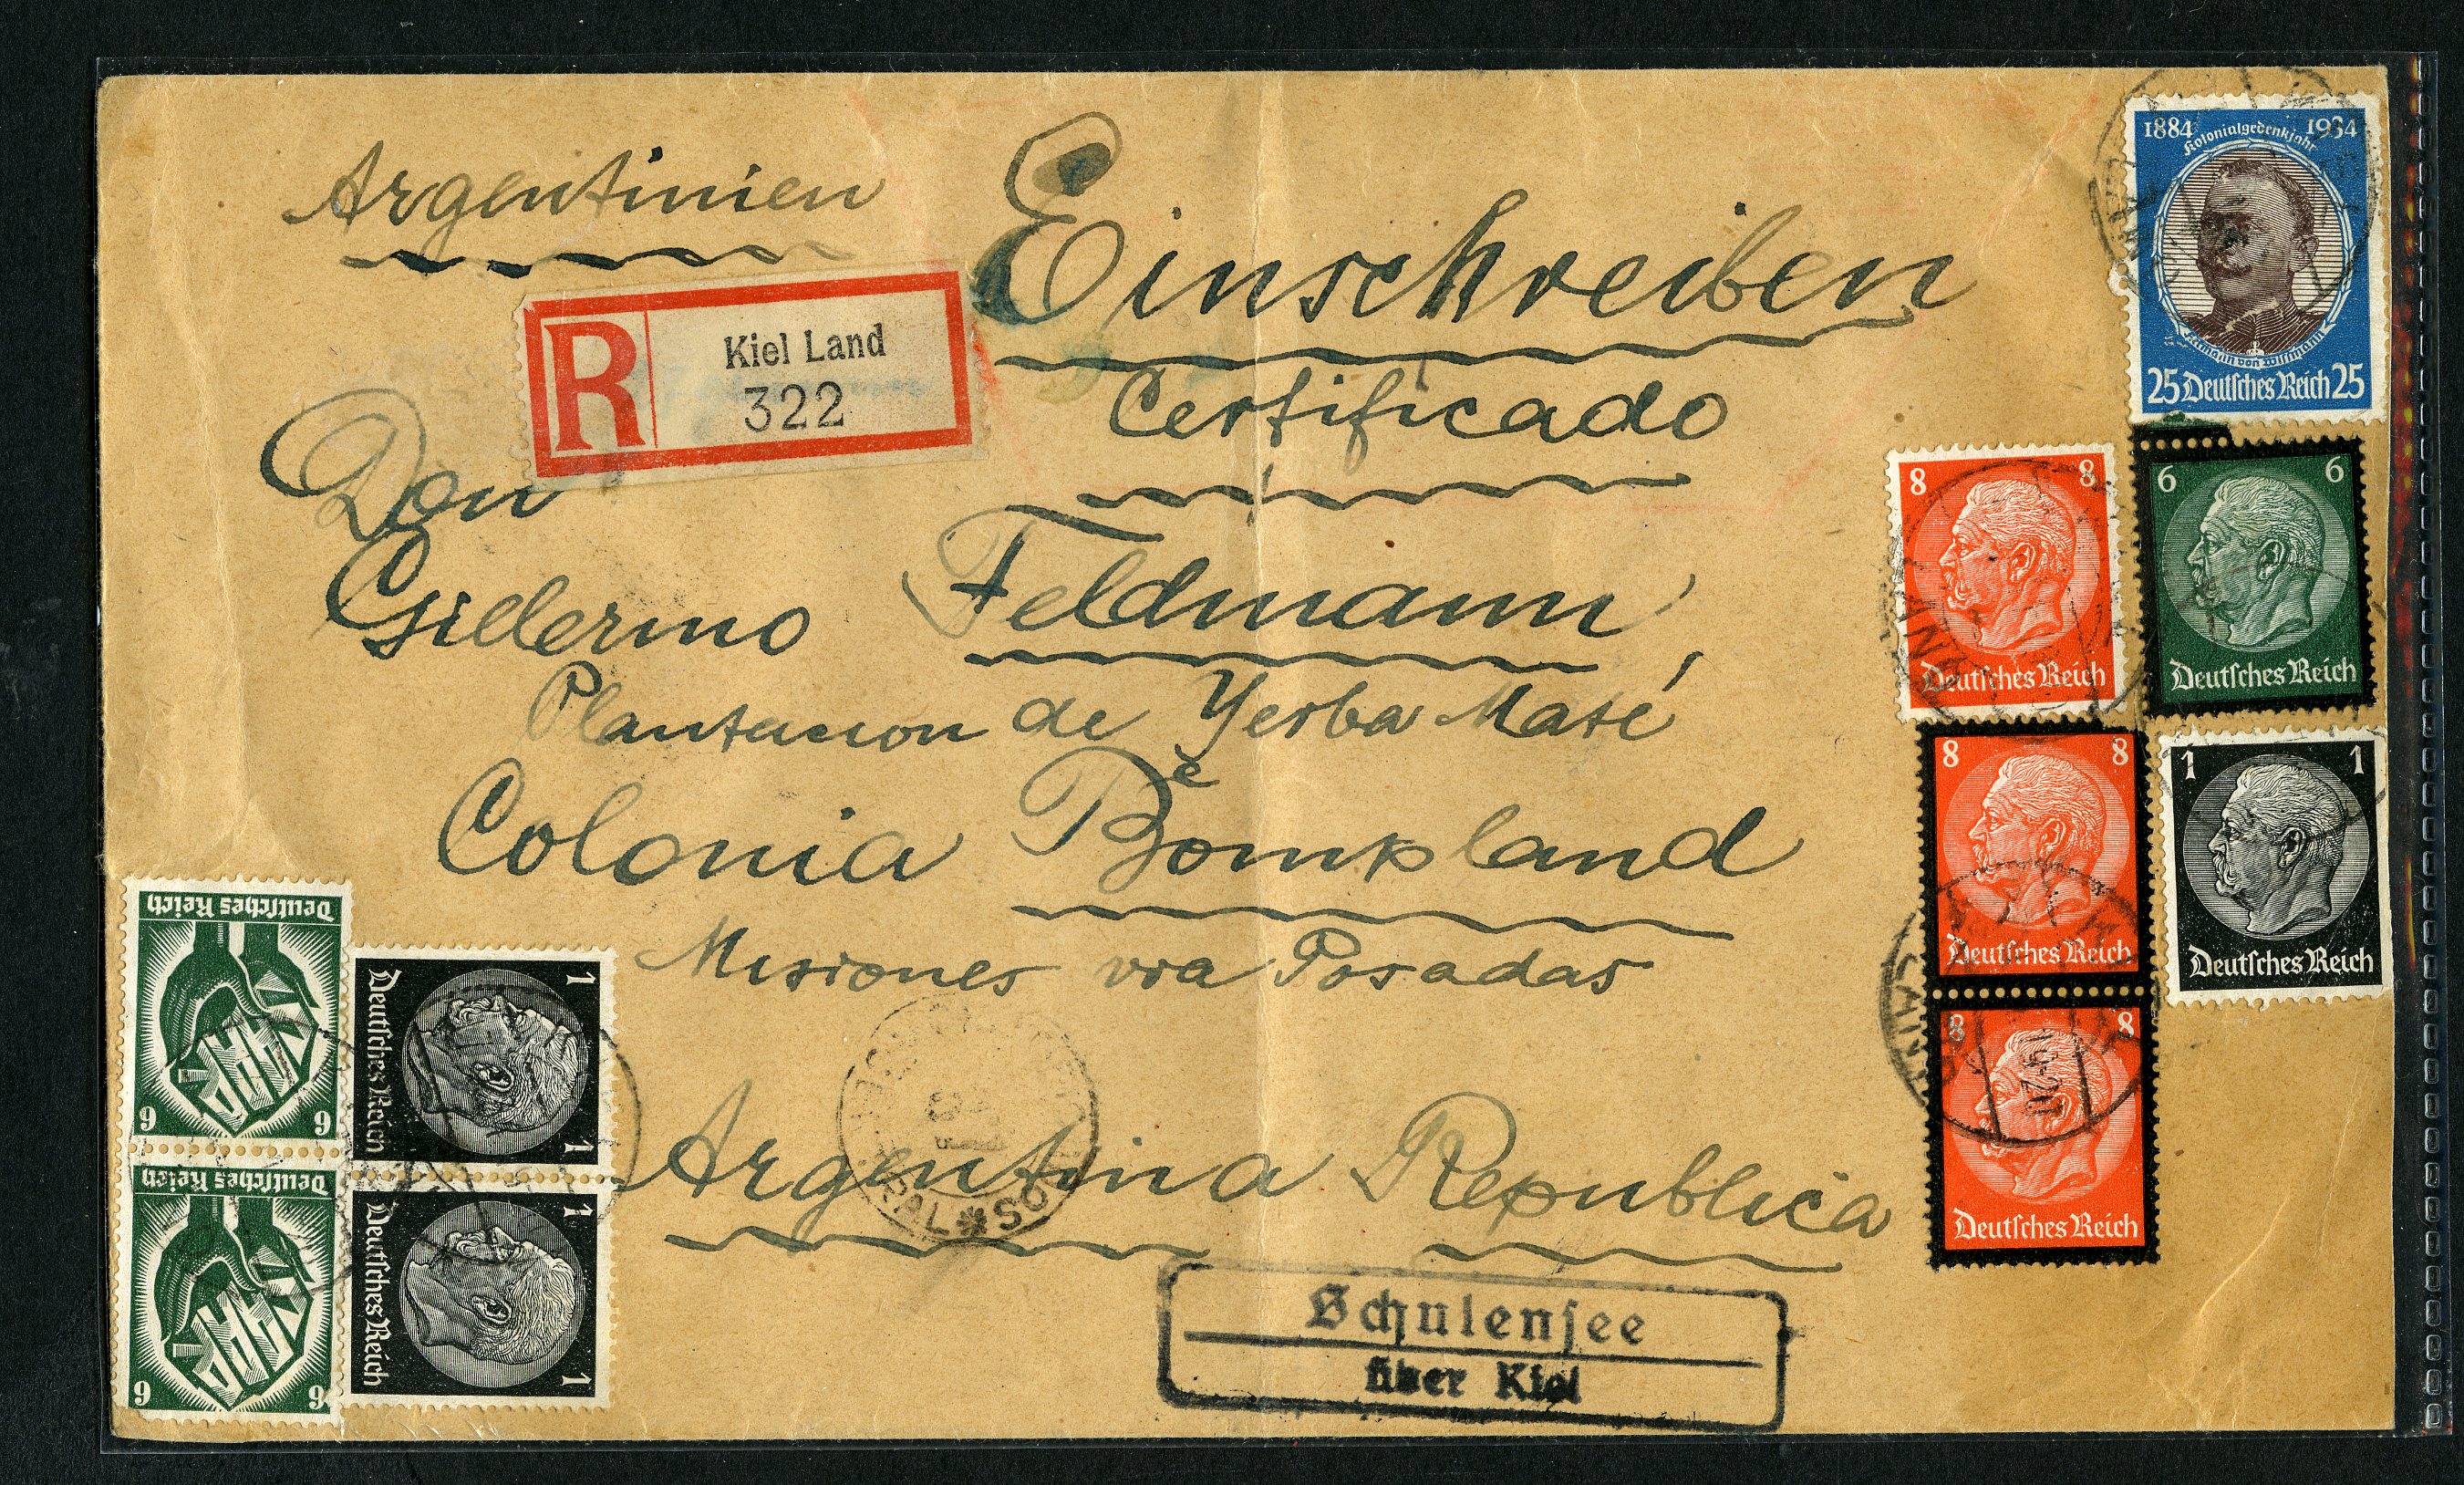 Argentinien
Einschreiben
Certificado
R
Kiel Land
322
Don
Guillermo Feldmann,
Plantacion de Yerba Maté
Colonia Bompland
Misiones via Posadas
Argentina Republica
1884 1934
Kolonialgedenkjahr
Hermann von Wissmann
25 Deutsches Reich 25
8 8
Deutsches Reich
6 6
Deutsches Reich
8 8
Deutsches Reich
1 1
Deutsches Reich
8 8
Deutsches Reich
Deutsches Reich
SAAR
6 6
Deutsches Reich
SAAR
6 6
1 1
Deutsches Reich
1 1
Deutsches Reich
9-20
Schulensee
über Kiel